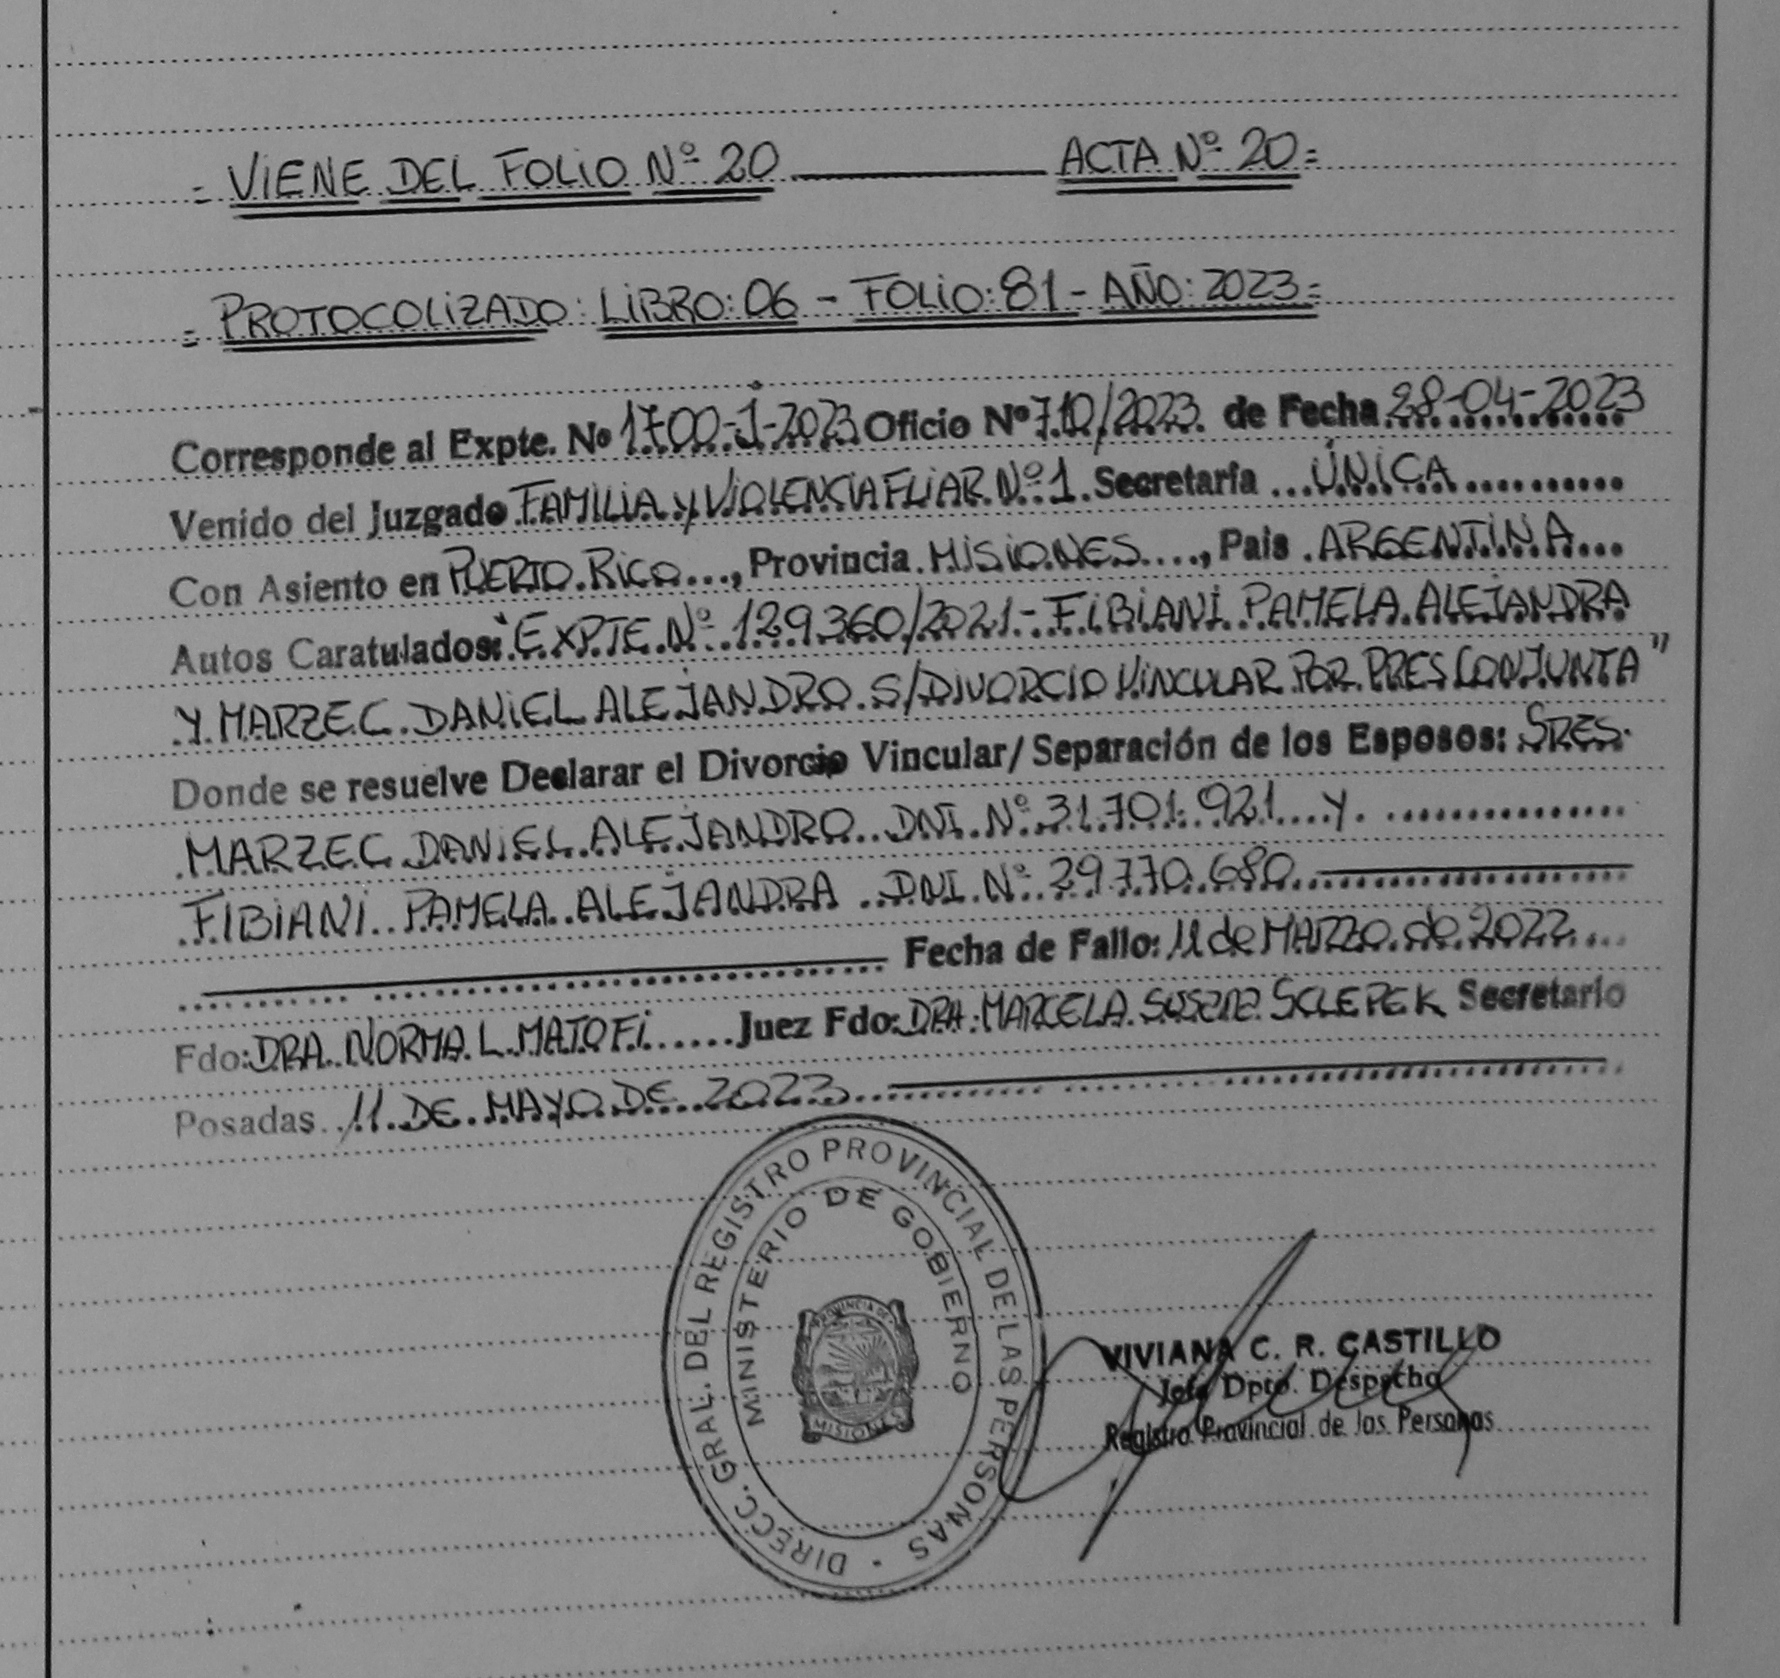 = VIENE DEL FOLIO Nº 20 ——— ACTA Nº 20 =
= PROTOCOLIZADO: LIBRO: 06 - FOLIO: 81 - AÑO: 2023 =
Corresponde al Expte. Nº 1700-J-2023 Oficio Nº 710/2023. de Fecha 28-04-2023
Venido del Juzgado FAMILIA Y VIOLENCIA FLIAR. Nº 1. Secretaría ... ÚNICA ..........
Con Asiento en PUERTO RICO ..., Provincia MISIONES ...., País ARGENTINA ...
Autos Caratulados: "EXPTE Nº 129360/2021 - FIBIANI PAMELA ALEJANDRA
Y MARZEC DANIEL ALEJANDRO S/DIVORCIO VINCULAR POR PRES CONJUNTA"
Donde se resuelve Declarar el Divorcio Vincular/Separación de los Esposos: SRES.
MARZEC DANIEL ALEJANDRO DNI Nº 31.701.921 .... Y. ...............
FIBIANI PAMELA ALEJANDRA DNI Nº 29.770.680 ———
——— Fecha de Fallo: 11 de MARZO de 2022 ....
Fdo: DRA. NORMA L. MATOFI ...... Juez Fdo: DRA. MARCELA SUSANA SCLEPEK Secretario
Posadas 11 DE MAYO DE 2023 ———
DIRECC. GRAL. DEL REGISTRO PROVINCIAL DE LAS PERSONAS
MINISTERIO DE GOBIERNO
PROVINCIA DE
MISIONES
VIVIANA C. R. CASTILLO
Jefa Dpto. Despacho
Registro Provincial de las Personas